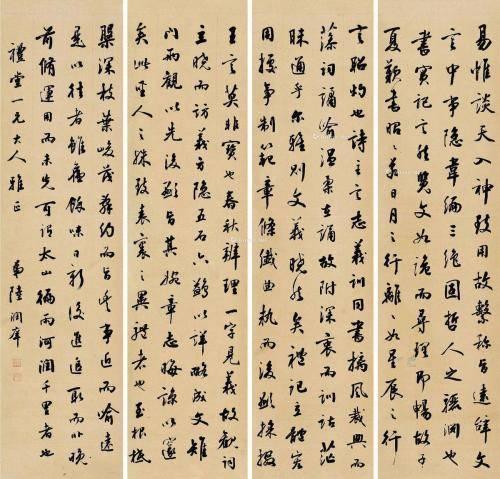 易惟談天入神致用故繫稱旨遠辭文
言中事隱韋編三絕固哲人之驪淵也
書實記言然覽文如詭而尋理即暢故子
夏歎書昭昭若日月之行離離如星辰之行
言昭灼也詩主言志義同書摛風裁興而
藻詞譎喻溫柔在誦故附深衷而訓詁茫
昧通乎尔雅則文義曉然矣禮記立體宏
用據事制範章條纖曲執而後顯採掇
王言莫非寶也春秋辨理一字見義故觀詞
立曉而訪義方隱五石六鷁以詳略成文雉
門兩觀以先後顯旨其婉章志晦諒以邃
矣此聖人之殊致表裏之異體者也至根柢
槃深枝葉峻茂辭約而旨豐事近而喻遠
是以往者雖舊餘味日新後進追取而非晚
前脩運用而未先可謂太山徧雨河潤千里者也
禮堂一兄大人雅正
弟陸潤庠